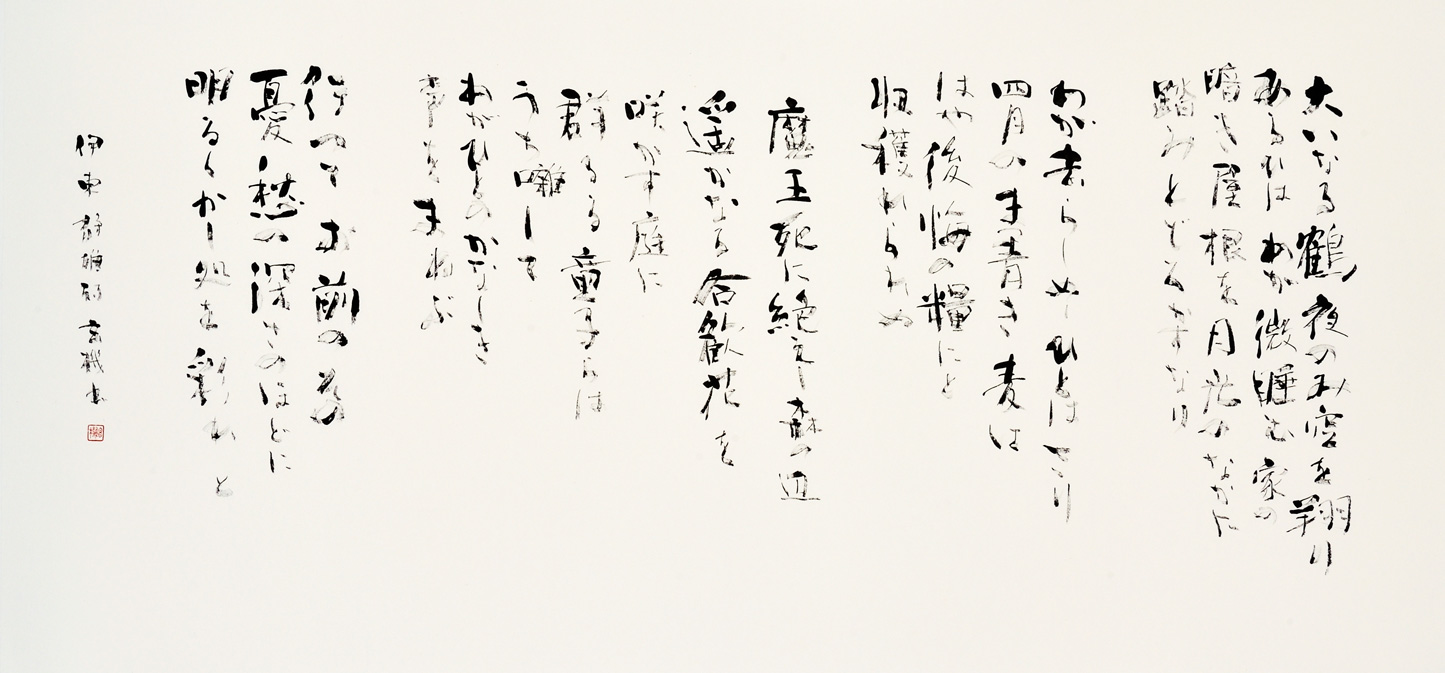 大いなる鶴夜のみ空を翔り
あるひはわが微睡む家の
暗き屋根を月光のなかに
踏みとどろかすなり
わが去らしめしひとはさり
四月のまつ青き麦は
はや後悔の糧にと
収穫れられぬ
魔王死に絶えし森の辺
遥かなる合歓花を
咲かす庭に
群るる童子らは
うち囃して
わがひとのかなしき
声をまねぶ
行つて お前のその
憂愁の深さのほどに
明るくかし処を彩れ と
伊東静雄詩 書